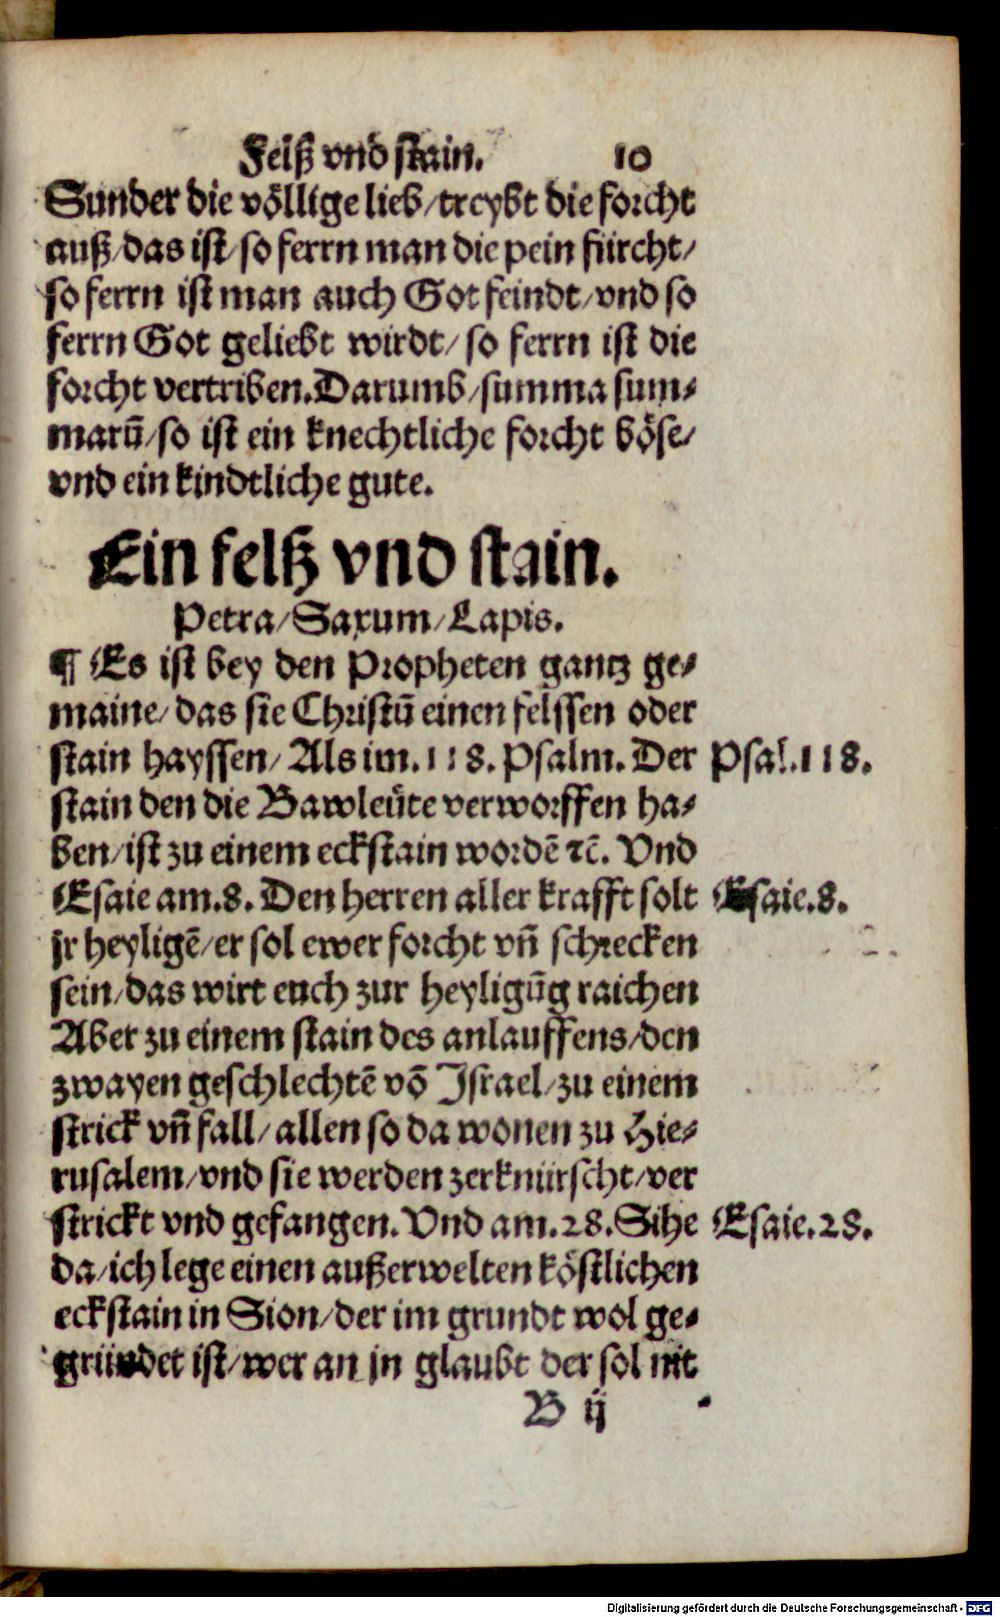 Felß vnd stain. 10
Sunder die völlige lieb/treybt die forcht
auß/das ist/so ferrn man die pein fürcht/
so ferrn ist man auch Got feindt/vnd so
ferrn Got geliebt wirdt/so ferrn ist die
forcht vertriben.Darumb/summa sum-
marū/so ist ein knechtliche forcht böse/
vnd ein kindtliche gute.
Ein felß vnd stain.
Petra/Saxum/Lapis.
¶ Es ist bey den Propheten gantz ge-
maine/das sie Christū einen felssen oder
stain hayssen/Als im.118.Psalm.Der Psal.118.
stain den die Bawleüte verworffen ha-
ben/ist zu einem eckstain wordē ⁊c̄. Vnd
Esaie am.8.Den herren aller krafft solt Esaie.8.
jr heyligē/er sol ewer forcht vn̄ schrecken
sein/das wirt euch zur heyligūg raichen
Aber zu einem stain des anlauffens/den
zwayen geschlechtē vō Israel/zu einem
strick vn̄ fall/allen so da wonen zu Hie-
rusalem/vnd sie werden zerknürscht/ver
strickt vnd gefangen.Vnd am.28.Sihe Esaie.28.
da/ich lege einen außerwelten köstlichen
eckstain in Sion/der im grundt wol ge-
gründet ist/wer an jn glaubt der sol nit
B ij
Digitalisierung gefördert durch die Deutsche Forschungsgemeinschaft - DFG